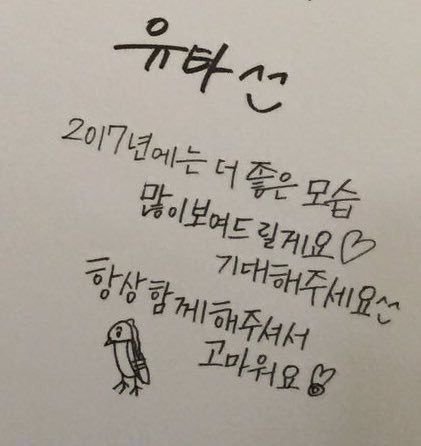 유타선
2017년에는 더 좋은 모습
많이보여드릴게요♡
기대해주세요~
항상함께해주셔서
고마워요!